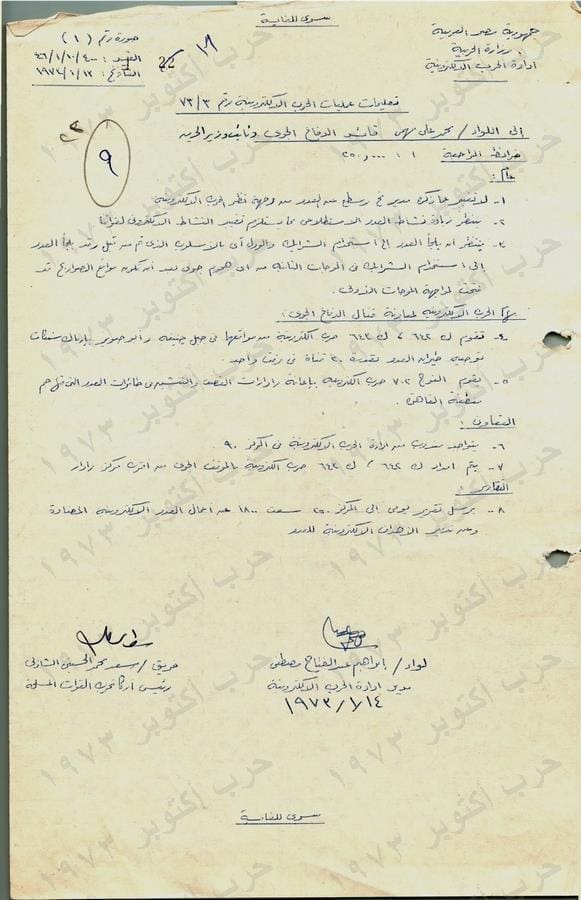 سرى للغاية
جمهورية مصر العربية
وزارة الحربية
ادارة الحرب الالكترونية
صورة رقم (١)
القيد : ٤٦/١/١٠/٤٠٠
التاريخ : ١٩٧٣/١/١٣
تعليمات عمليات الحرب الالكترونية رقم ٧٣/٣
٩
الى اللواء / محمد على فهمى قائد الدفاع الجوى ونائب وزير الحربية
خرائط المراجعة ١ : ٢٥٠,٠٠٠
عام :
١- لا تغيير عما ذكره مدير مخ رسطع عن العدو من وجهة نظر الحرب الالكترونية
٢- ينتظر زيادة نشاط العدو الاستطلاعى مما يستلزم تقييد النشاط الالكترونى لقواتنا
٣- ينتظر أن يلجأ العدو الى استخدام الشرايك والوول آى بالاسلوب الذى تم من قبل وقد يلجأ العدو
الى استخدام الشرايك فى الموجات الثانية من اى هجوم جوى بعد أن تكون مواقع الصواريخ قد
فتحت لمواجهة الموجات الأولى .
مهام الحرب الالكترونية لمعاونة قتال الدفاع الجوى :
٤- تقوم ك ٦٤٢ ، ك ٦٤٣ حرب الكترونية من مواقعها فى جبل جنيفه وأبو صوير بإرباك شبكات
توجيه طيران العدو لقدرة ٢٠ قناة فى وقت واحد .
٥- يقوم الفوج ٧٠٢ حرب الكترونية بإعاقة رادارات القصف والتفتيش فى طائرات العدو التى تهاجم
منطقة القاهرة .
التعاون :
٦- يتواجد مندوب من ادارة الحرب الالكترونية فى المركز ٩٠
٧- يتم امداد ك ٦٤٢ ، ك ٦٤٣ حرب الكترونية بالموقف الجوى من أقرب مركز رادار
التقارير :
٨- يرسل تقرير يومى الى المركز ٢٥٠ سعت ١٨٠٠ عن اعمال العدو الالكترونية المضادة
وعن تدمير الأهداف الالكترونية للعدو
لواء / ابراهيم عبد الفتاح مصطفى
مدير ادارة الحرب الالكترونية
١٩٧٣/١/١٤
فريق / سعد محمد الحسينى الشاذلى
رئيس اركان حرب القوات المسلحة
سرى للغاية
حرب أكتوبر ١٩٧٣